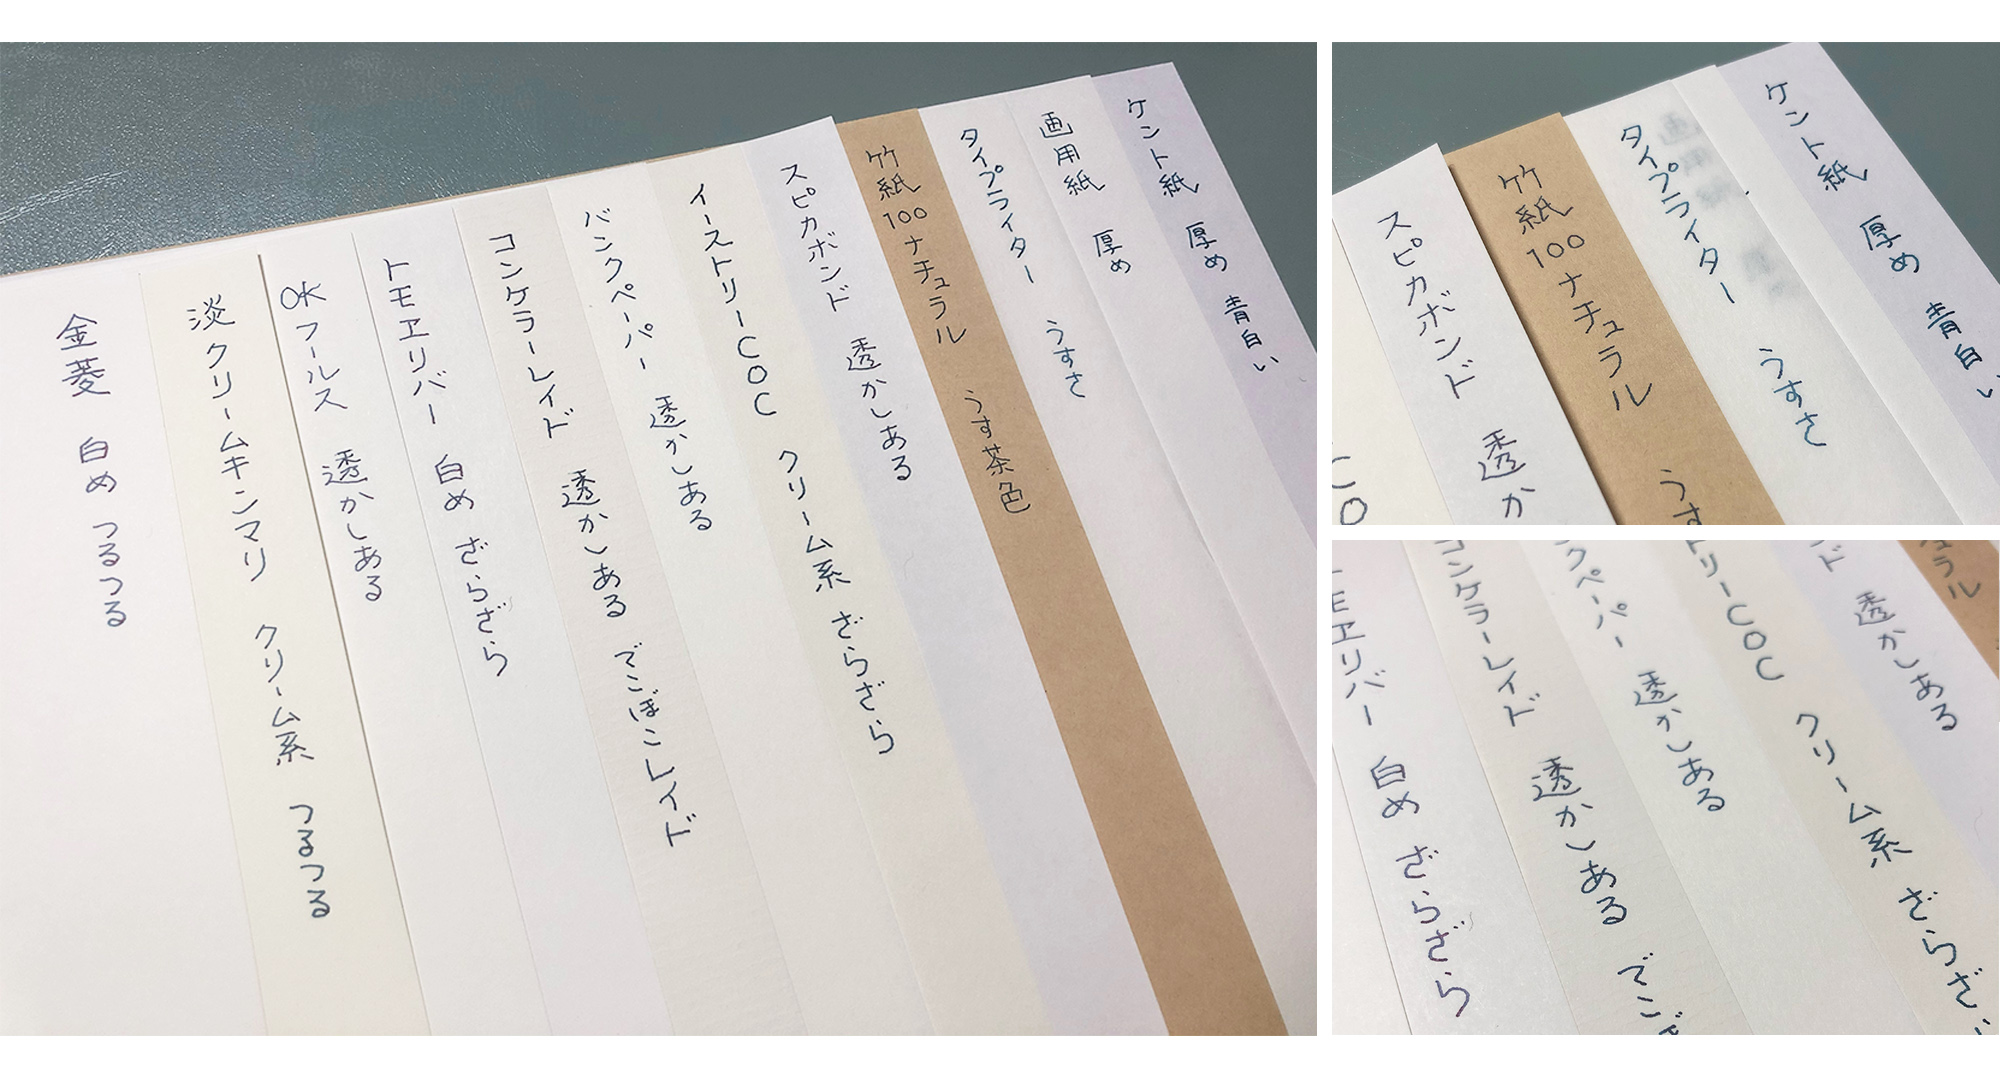 ケント紙 厚め 青白い
画用紙 厚め
タイプライター うすさ
竹紙100ナチュラル うす茶色
スピカボンド 透かしある
イーストリーCOC クリーム系 ざらざら
バンクペーパー 透かしある
コンケラーレイド 透かしある でこぼこレイド
トモヱリバー 白め ざらざら
OKフールス 透かしある
淡クリームキンマリ クリーム系 つるつる
金菱 白め つるつる
ケント紙 厚め 青白い
画用紙 厚め
タイプライター うすさ
竹紙100ナチュラル うす
スピカボンド 透か
CO
ュラル
ド 透かしある
トリーCOC クリーム系 ざらざ
ンクペーパー 透かしある
コンケラーレイド 透かしある でこぼ
モヱリバー 白め ざらざら